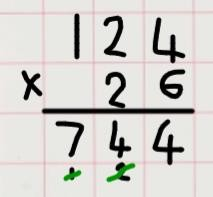 124
x 26
744
1 2